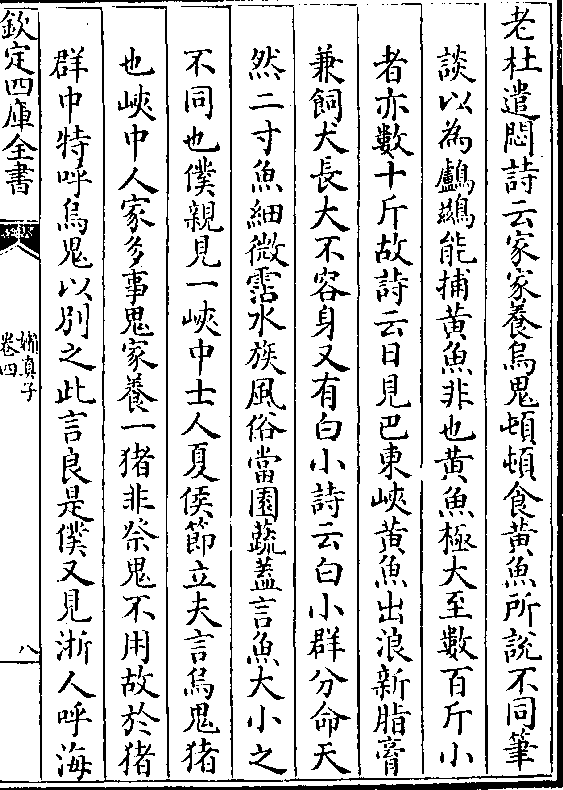 老杜遣悶詩云家家養烏鬼頓頓食黃魚所説不同筆
談以為鸕鷀能捕黃魚非也黃魚極大至數百斤小
者亦數十斤故詩云日見巴東峽黃魚出浪新脂膏
兼飼犬長大不容身又有白小詩云白小群分命天
然二寸魚細微霑水族風俗當園蔬蓋言魚大小之
不同也僕親見一峽中士人夏侯節立夫言烏鬼猪
也峽中人家多事鬼家養一猪非祭鬼不用故於猪
群中特呼烏鬼以別之此言良是僕又見浙人呼海
欽定四庫全書
嬾真子
卷四
八